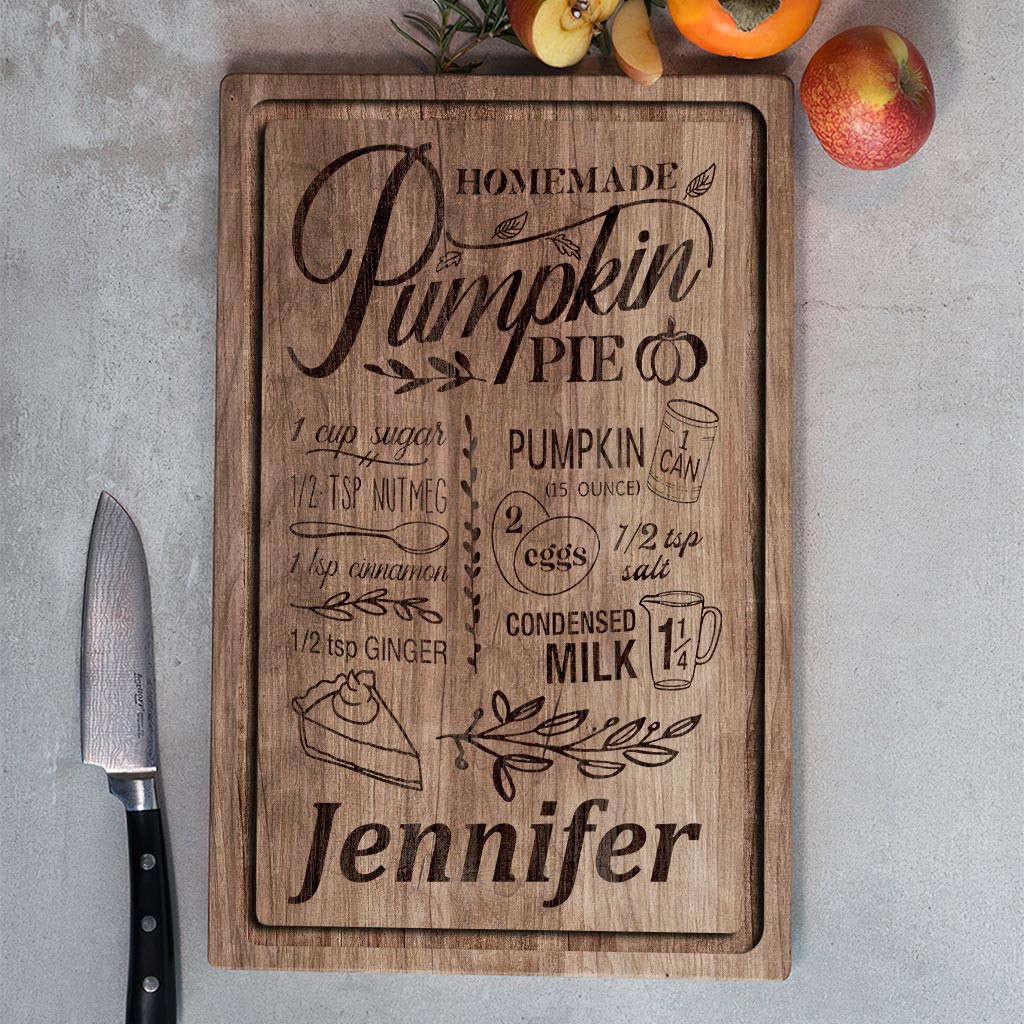 HOMEMADE
Pumpkin
PIE
1 cup sugar
1/2 TSP NUTMEG
1 tsp cinnamon
1/2 tsp GINGER
PUMPKIN
(15 OUNCE)
1
CAN
2
eggs
1/2 tsp
salt
CONDENSED
MILK
1 1/4
Jennifer